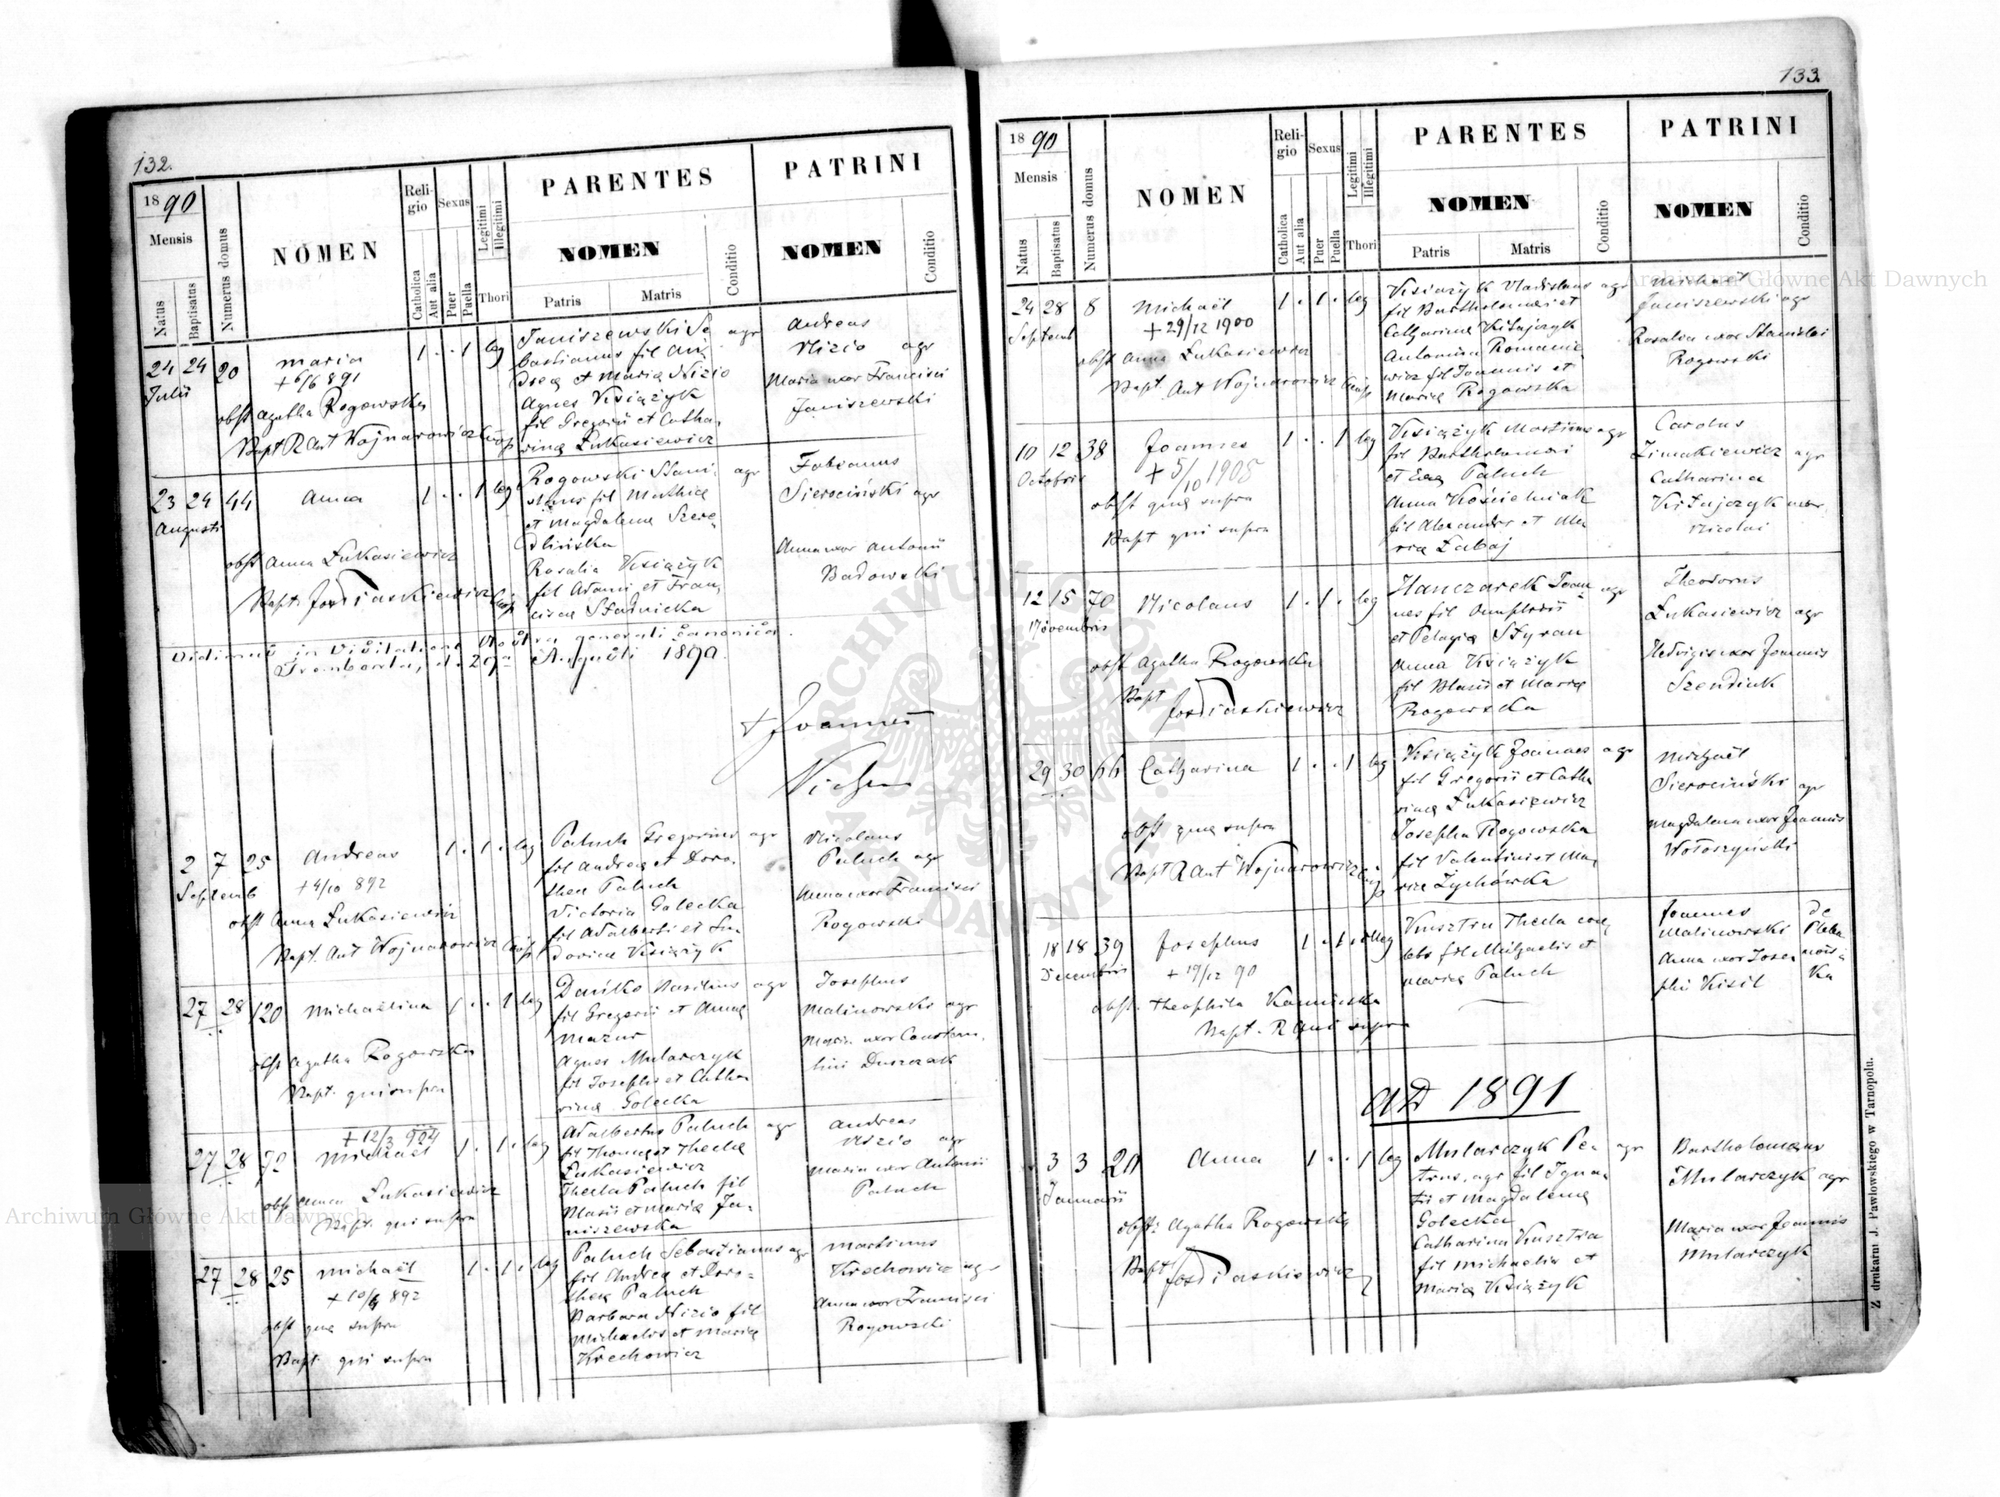 132.
1890
Mensis
Natus
Baptisatus
Numerus domus
NOMEN
Religio
Catholica
Aut alia
Sexus
Puer
Puella
Legitimi
Illegitimi
Thori
PARENTES
NOMEN
Patris
Matris
Conditio
PATRINI
NOMEN
Conditio
24 24 20 Maria 1 . . 1 leg
Julii
+ 6/6 891
obst Agatha Rogowska
Bapt R Ant Wojnarowicz Coop
Janiszewski Se agr
bastianus fil An
dreae et Maria Nizio
Agnes Książyk
fil Gregorii et Catha
rina Łukasiewicz
Andreas
Nizio agr
Maria uxor Francisci
Janiszewski
23 24 44 Anna 1 . . 1 leg
Augusti
obst Anna Łukasiewicz
Bapt. Jos Diaskiewicz Coop
Rogowski Stani agr
slaus fil Mathiae
et Magdalena
Rosalia Książyk
fil Adami et Fran
cisca
Fabianus
Sierociński agr
Anna uxor Antonii
Badowski
Vidimus in Visitatione Nostra generali canonica.
Trenbowla, d. 29 Augusti 1890.
+ Joannes
2 7 25 Andreas 1 . 1 . leg
Septemb
+ 4/10 892
obst Anna Łukasiewicz
Bapt. Ant Wojnarowicz Coop
Paluch Gregorius agr
fil Andreae et Doro
thea Paluch
Victoria Golecka
fil Adalberti et
Książyk
Nicolaus
Paluch agr
Anna uxor Francisci
Rogowski
27 28 120 Michaëlina 1 . . 1 leg
obst Agatha Rogowska
Bapt. qui supra
Dańko Basilius agr
fil Gregorii et Anna
Mazur
Agnes Mularczyk
fil Josephi et Catha
rina Golecka
Josephus
Malinowski agr
Maria uxor Constan
tini Duszczak
+ 12/3 904
27 28 72 Michaël 1 . 1 . leg
obst Anna Łukasiewicz
Bapt. qui supra
Adalbertus Paluch agr
fil Thoma et Thecla
Łukasiewicz
Thecla Paluch fil
Blasii et Maria Ja
niszewska
Andreas
Nizio agr
Maria uxor Antonii
Paluch
27 28 25 Michaël 1 . 1 . leg
+ 10/4 892
obst quae supra
Bapt. qui supra
Paluch Sebastianus agr
fil Andreae et Doro
thea Paluch
Barbara Nizio fil
Michaelis et Maria
Krechowicz
Martinus
Krechowicz agr
Anna uxor Francisci
Rogowski
133.
1890
Mensis
Natus
Baptisatus
Numerus domus
NOMEN
Religio
Catholica
Aut alia
Sexus
Puer
Puella
Legitimi
Illegitimi
Thori
PARENTES
NOMEN
Patris
Matris
Conditio
PATRINI
NOMEN
Conditio
24 28 8 Michaël 1 . 1 . leg
Septemb
+ 29/12 1900
obst Anna Łukasiewicz
Bapt. Ant Wojnarowicz Coop
Książyk Vladislaus agr
fil Bartholomaei et
Catharina Kitajczyk
Antonina Romanie
wicz fil Joannis et
Maria Rogowska
Michaël
Janiszewski agr
Rosalia uxor Stanislai
Rogowski
10 12 38 Joannes 1 . . 1 leg
Octobris
+ 5/10 1905
obst quae supra
Bapt qui supra
Książyk Martinus agr
fil Bartholomaei
et Eva Paluch
Anna Kościelniak
fil Alexandri et Ma
ria Łabaj
Carolus
Zimakiewicz agr
Catharina
Kitajczyk uxor
Nicolai
12 15 70 Nicolaus 1 . 1 . leg
Novembris
obst Agatha Rogowska
Bapt Jos Diaskiewicz
Hanczarek Joan agr
nes fil Onuphrii
et Pelagia Styran
Anna Książyk
fil Blasii et Maria
Rogowska
Theodorus
Łukasiewicz agr
Hedvigis uxor Joannis
Szendiuk
29 30 66 Catharina 1 . . 1 leg
obst quae supra
Bapt R Ant Wojnarowicz Coop
Książyk Joannes agr
fil Gregorii et Catha
rina Łukasiewicz
Josepha Rogowska
fil Valentini et Ma
ria Zychówka
Michaël
Sierociński agr
Magdalena uxor Joannis
Wołoszyński
18 18 39 Josephus 1 . 1 . illeg
Decembris
+ 19/12 90
obst. Theophila Kamińska
Bapt. R Ant supra
Kusztra Thecla coe
lebs fil Michaelis et
Maria Paluch
Joannes
Malinowski
Anna uxor Jose
phi Kisil
de
Pleba
nów
ka
AD 1891
3 3 20 Anna 1 . . 1 leg
Januarii
obst: Agatha Rogowska
Bapt Jos Diaskiewicz
Mularczyk Pe- agr
trus, agr fil Igna
tii et Magdalena
Golecka
Catharina Kusztra
fil Michaelis et
Maria Książyk
Bartholomaeus
Mularczyk agr
Maria uxor Joannis
Mularczyk
Z drukarni J. Pawłowskiego w Tarnopolu.
Archiwum Główne Akt Dawnych
Archiwum Główne Akt Dawnych
ARCHIWUM GŁÓWNE AKT DAWNYCH